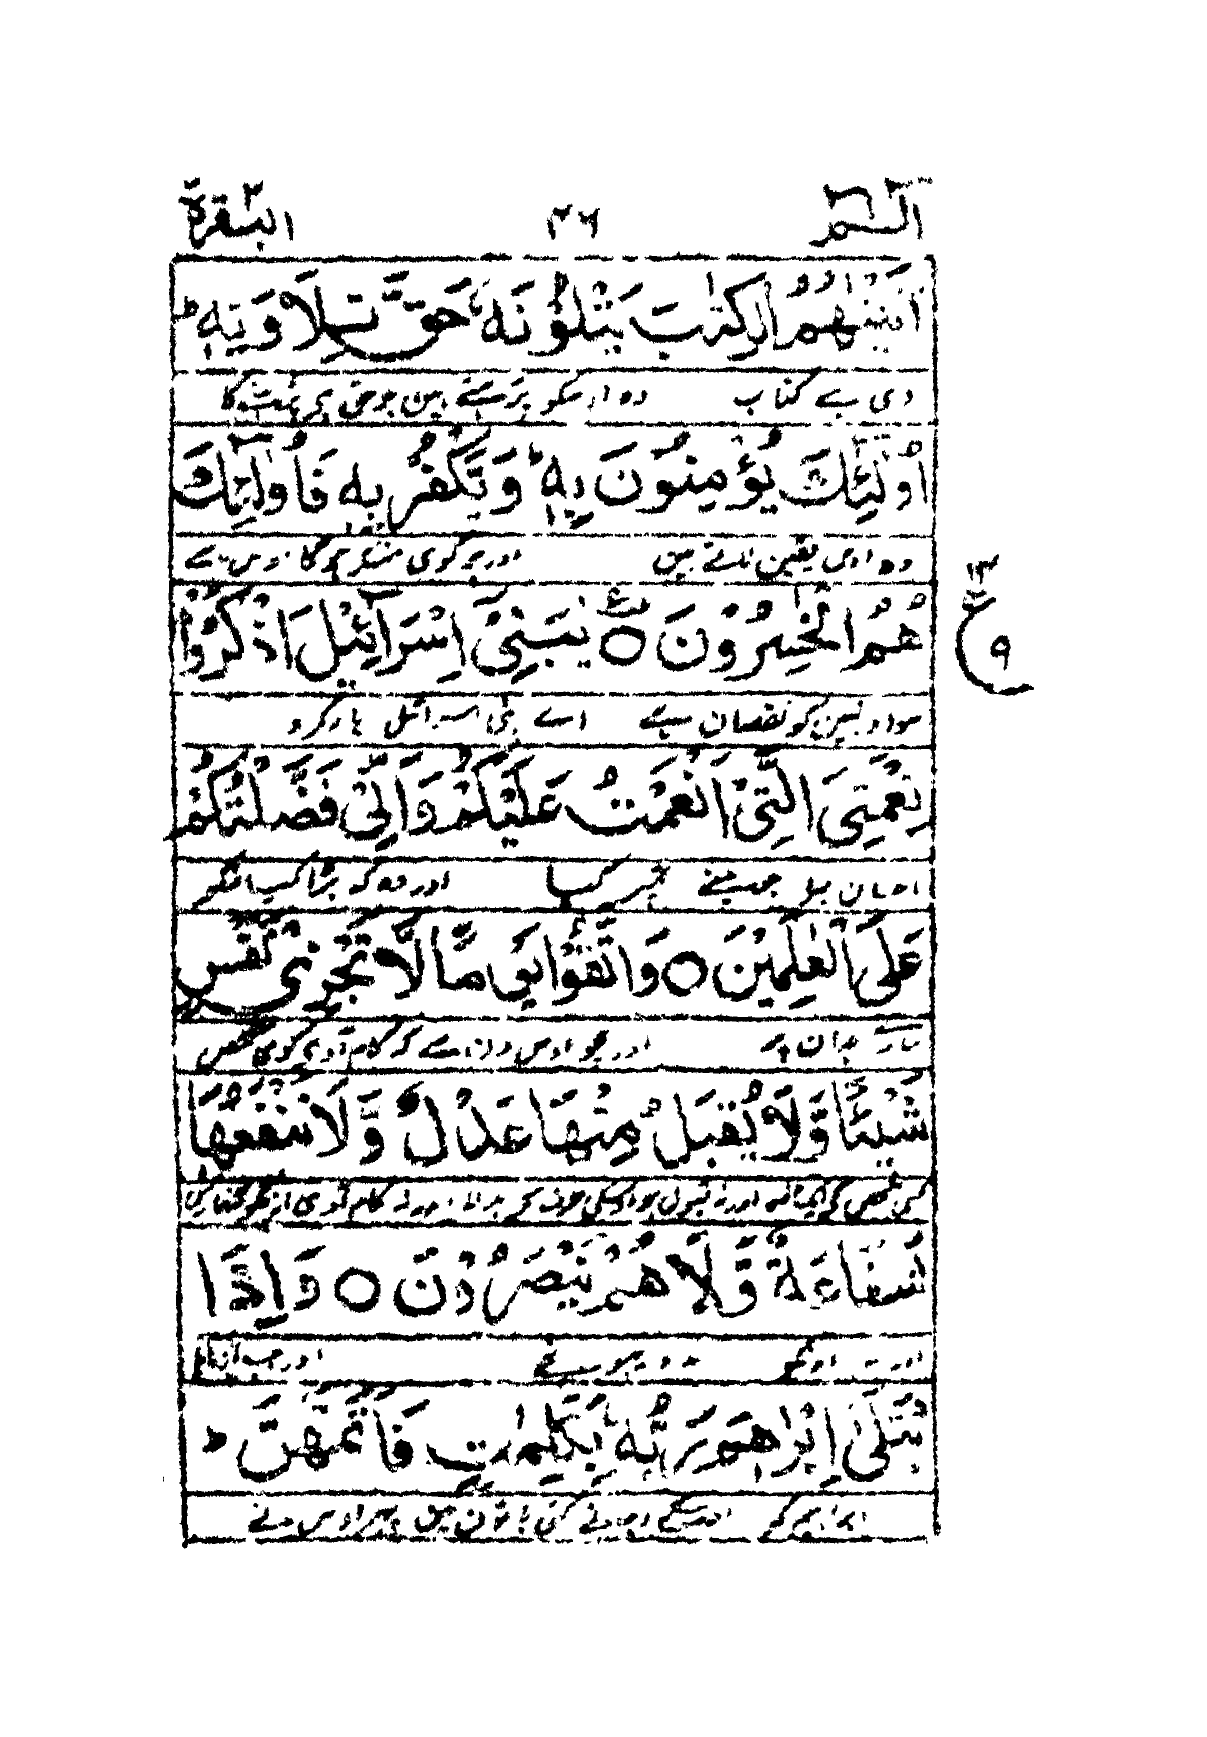 الٓمّٓ ۲۶ البقرة ۲
اٰتَيْنٰهُمُ الْكِتٰبَ يَتْلُوْنَهٗ حَقَّ تِلَاوَتِهٖ ؕ
دی ہے کتاب وہ اوسکو پڑھتے ہین جو حق ہے پڑھنے کا
اُولٰٓئِكَ يُؤْمِنُوْنَ بِهٖ ؕ وَ يَكْفُرْ بِهٖ فَاُولٰٓئِكَ
وہ اوس یقین لاتے ہین اور جو کوی منکر ہوگا اوس سے
هُمُ الْخٰسِرُوْنَ ○ ع يٰبَنِيْٓ اِسْرَآئِيْلَ اذْكُرُوْا
سو اونہین کو نقصان ہے اے بنی اسرائیل یاد کرو
۱۴ ع ۹
نِعْمَتِيَ الَّتِيْٓ اَنْعَمْتُ عَلَيْكُمْ وَ اَنِّيْ فَضَّلْتُكُمْ
احسان میرا جو مینے تمپر کیا اور وہ کہ بڑا کیا تمکو
عَلَى الْعٰلَمِيْنَ ○ وَ اتَّقُوْا يَوْمًا لَّا تَجْزِيْ نَفْسٌ
سارے جہان پر اور بچو اوس دن سے کہ کام نہ آوے کوی شخص
شَيْئًا وَّ لَا يُقْبَلُ مِنْهَا عَدْلٌ وَّ لَا تَنْفَعُهَا
کسی شخص کے اور نہ قبول ہو اوسکی طرف سے بدلا اور نہ کام آوے
شَفَاعَةٌ وَّ لَا هُمْ يُنْصَرُوْنَ ○ وَ اِذِ ا
اور نہ اونکو مدد پہونچے اور جب آزمایا
بْتَلٰٓى اِبْرٰهٖمَ رَبُّهٗ بِكَلِمٰتٍ فَاَتَمَّهُنَّ ؕ
ابراہیم کو اوسکے رب نے کئی باتون مین پھر اوس نے